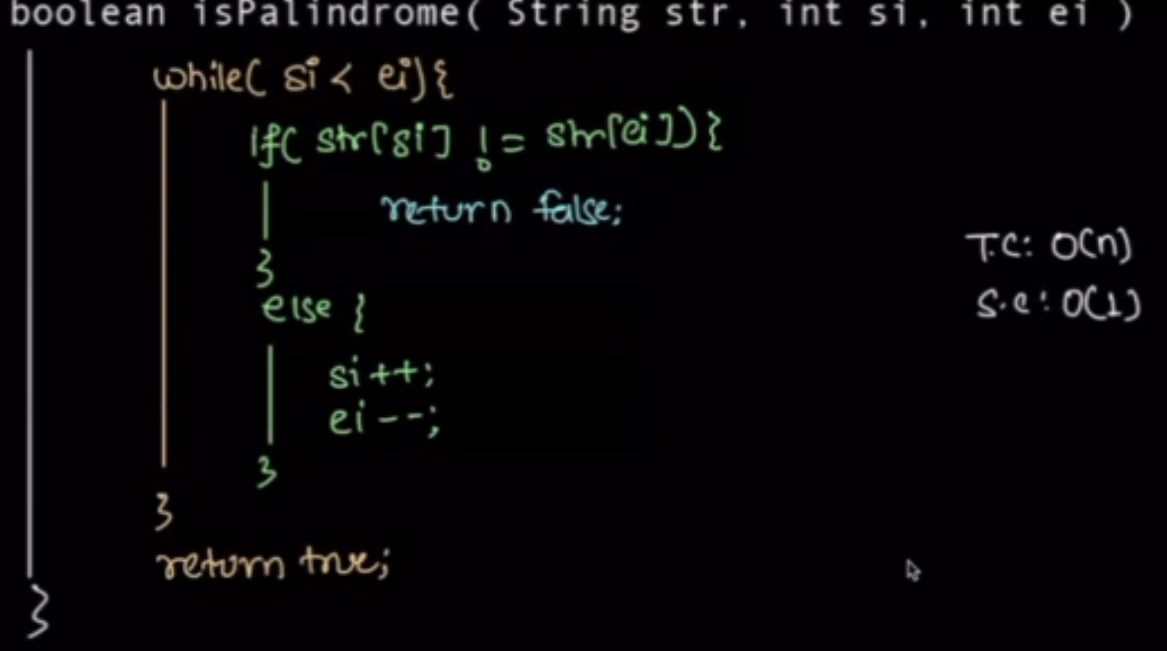 boolean isPalindrome( String str, int si, int ei )
while( si < ei){
if( str[si] != str[ei]){
return false;
}
else {
si++;
ei--;
}
}
return true;
}
T.C: O(n)
S.C: O(1)